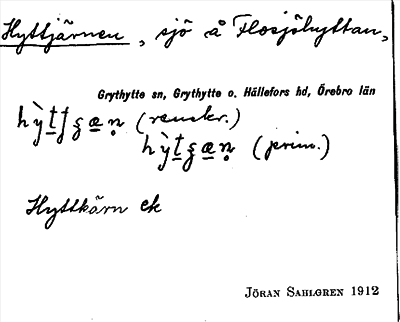 Hyttjärnen, sjö å Flosjöhyttan,
Grythytte sn, Grythytte o. Hällefors hd, Örebro län
(renskr.)
(prim.)
Hyttkärn ek
JÖRAN SAHLGREN 1912